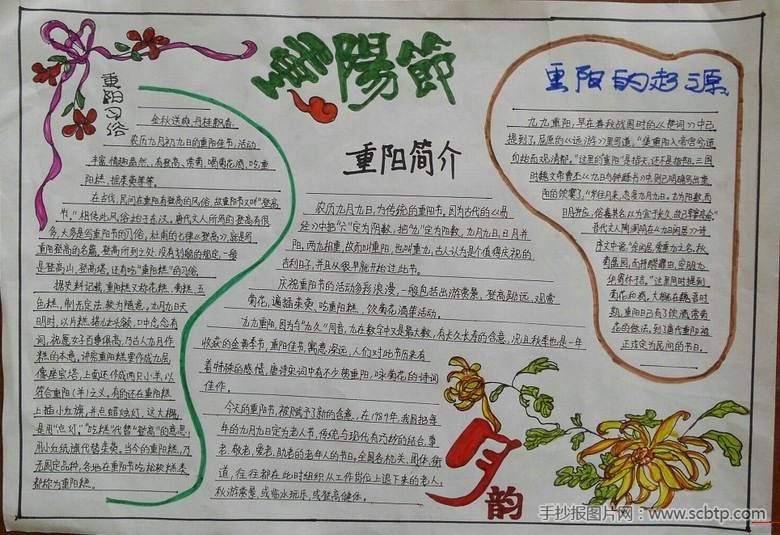 重陽節
重阳习俗
金秋送爽,丹桂飘香。
农历九月初九日的重阳佳节,活动
丰富,情趣盎然,有登高、赏菊、喝菊花酒、吃重
阳糕、插茱萸等等。
在古代,民间在重阳有登高的风俗,故重阳节又叫“登高
节”。相传此风俗始于东汉。唐代文人所写的登高诗很
多,大多是写重阳节的习俗;杜甫的七律《登高》,就是写
重阳登高的名篇。登高所到之处,没有划一的规定,一般
是登高山、登高塔。还有吃“重阳糕”的习俗。
据史料记载,重阳糕又称花糕、菊糕、五
色糕,制无定法,较为随意。九月九日天
明时,以片糕搭儿女头额,口中念念有
词,祝愿子女百事俱高,乃古人九月作
糕的本意。讲究重阳糕要作成九层,
像座宝塔,上面还作成两只小羊,以
符合重阳(羊)之义。有的还在重阳糕
上插小红旗,并点蜡烛灯。这大概
是用“点灯”、“吃糕”代替“登高”的意思,
用小红纸旗代替茱萸。当今的重阳糕,乃
无固定品种,各地在重阳节吃的松软糕类
都称为重阳糕。
重阳简介
农历九月九日,为传统的重阳节。因为古代的《易
经》中把“六”定为阴数,把“九”定为阳数,九月九日,日月并
阳,两九相重,故而叫重阳,也叫重九,古人认为是个值得庆贺的
吉利日子,并且从很早就开始过此节日。
庆祝重阳节的活动多彩浪漫,一般包括出游赏景、登高远眺、观赏
菊花、遍插茱萸、吃重阳糕、饮菊花酒等活动。
九九重阳,因为与“久久”同音,九在数字中又是最大数,有长久长寿的含意,况且秋季也是一年
收获的金黄季节,重阳佳节,寓意深远,人们对此节历来有
着特殊的感情,唐诗宋词中有不少贺重阳,咏菊花的诗词
佳作。
今天的重阳节,被赋予了新的含意,在1989年,我国把每
年的九月九日定为老人节,传统与现代巧妙的结合,尊
老、敬老、爱老、助老的老年人的节日。全国各机关、团体、街
道,往往都在此时组织从工作岗位上退下来的老人,
秋游赏景、或临水玩乐、或登高健体。
重阳的起源
九九重阳,早在春秋战国时的《楚词》中已
提到了。屈原的《远游》里写道:“集重阳入帝宫兮造
旬始而观清都”。这里的“重阳”是指天,还不是指节日。三国
时魏文帝曹丕《九日与钟繇书》中,则已明确写出重
阳的饮宴了:“岁往月来,忽复九月九日。九为阳数,而
日月并应,俗嘉其名,以为宜于长久,故以享宴高会。”
晋代文人陶渊明在《九日闲居》诗
序文中说:“余闲居,爱重九之名。秋
菊盈园,而持醪靡由,空服九
华,寄怀于言。”这里同时提到
菊花和酒。大概在魏晋时
期,重阳日已有了饮酒、赏菊
花的做法。到了唐代重阳被
正式定为民间的节日。
月韵
手抄报图片网:www.scbtp.com